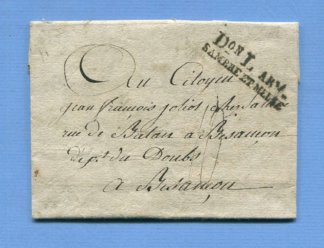 Don L. ARM.
SAMBRE ET MEUSE
Au Citoyen
jean francois joliot
rue de Battan a Besançon
dépt du Doubs
a Besançon